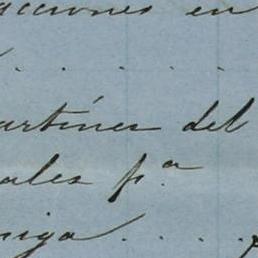 acciones en
. . . . .
artines del
ales p.ª
niga . . . .